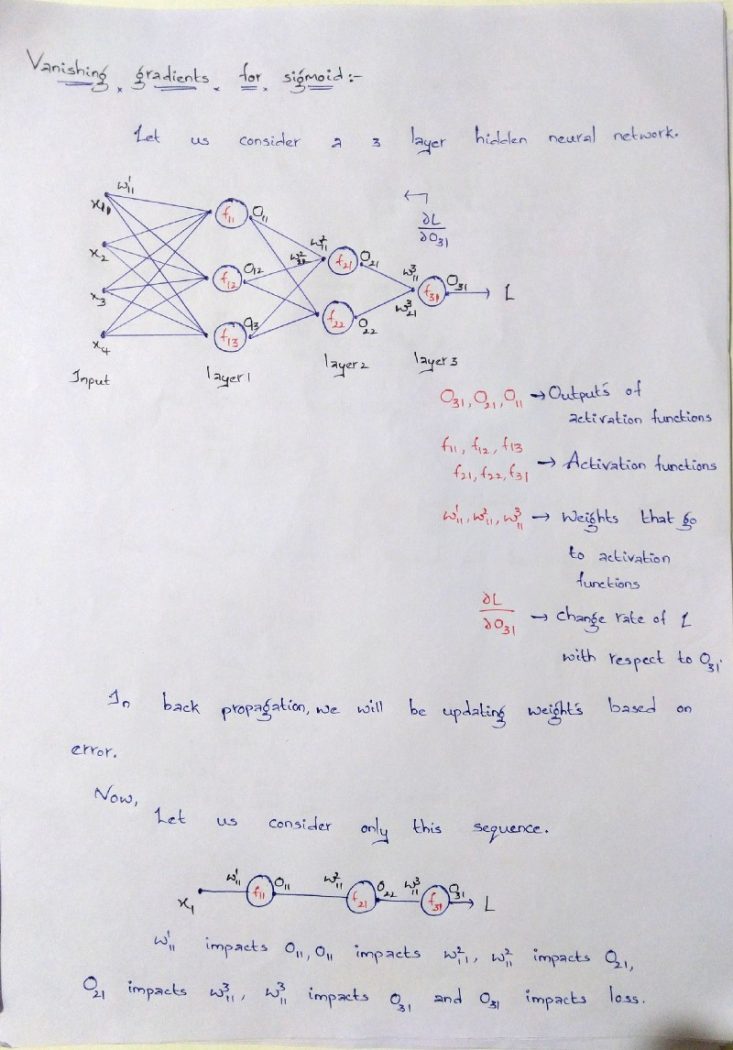 Vanishing gradients for sigmoid:-
Let us consider a 3 layer hidden neural network.
w¹₁₁
x₁₁
x₂
x₃
x₄
Input
f₁₁ O₁₁
f₁₂ O₁₂
f₁₃ O₃
layer 1
w²₁₁
f₂₁ O₂₁
f₂₂ O₂₂
layer 2
w³₁₁
w³₂₁
f₃₁ O₃₁ → L
layer 3
←
∂L
∂O₃₁
O₃₁, O₂₁, O₁₁ → Outputs of
activation functions
f₁₁, f₁₂, f₁₃
f₂₁, f₂₂, f₃₁ → Activation functions
w¹₁₁, w²₁₁, w³₁₁ → Weights that go
to activation
functions
∂L
∂O₃₁ → Change rate of L
with respect to O₃₁.
In back propagation, we will be updating weights based on
error.
Now,
Let us consider only this sequence.
x₁ w¹₁₁ f₁₁ O₁₁ w²₁₁ f₂₁ O₂₂ w³₁₁ f₃₁ O₃₁ → L
w¹₁₁ impacts O₁₁, O₁₁ impacts w²₁₁, w²₁₁ impacts O₂₁,
O₂₁ impacts w³₁₁, w³₁₁ impacts O₃₁ and O₃₁ impacts loss.